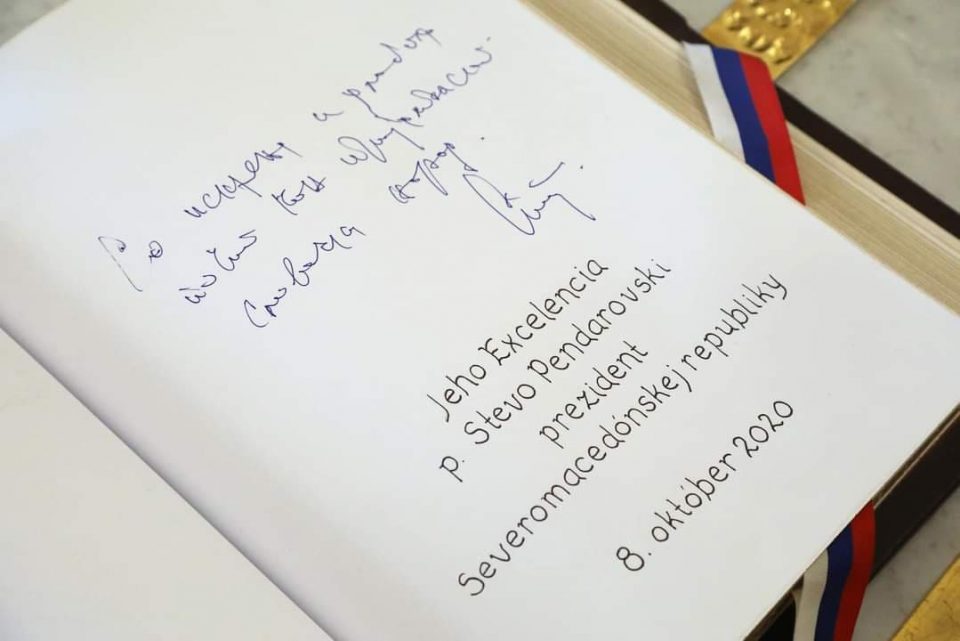 Со искрена и
почит кон пријателски
словачки народ.
Jeho Excelencia
p. Stevo Pendarovski
prezident
Severomacedónskej republiky
8. október 2020